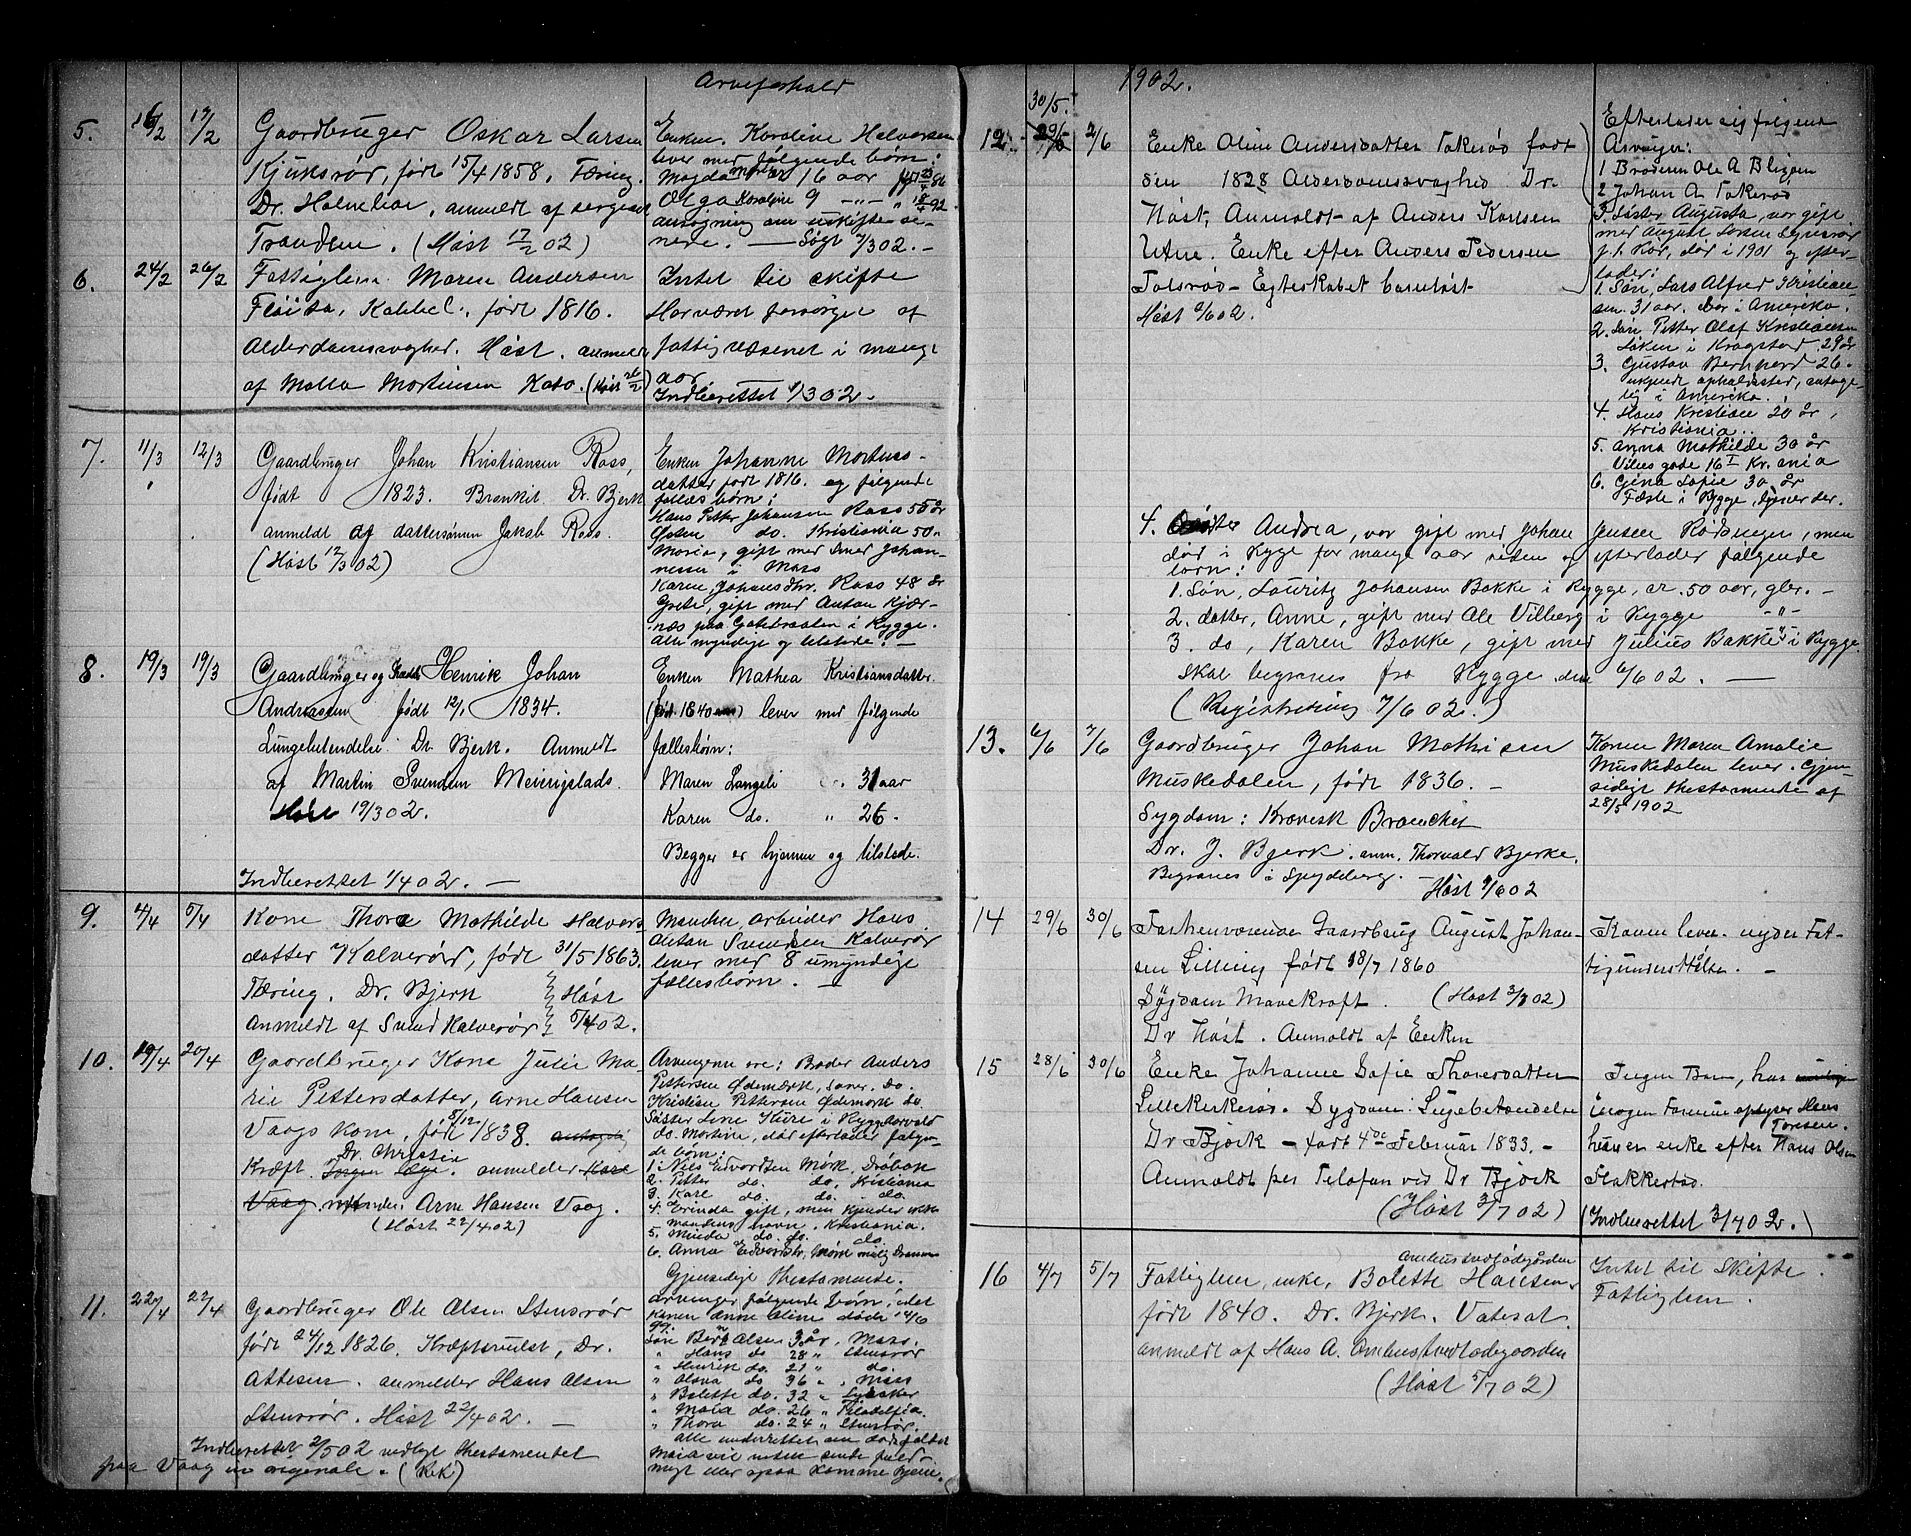 Arveforhold
5. 16/2 17/2 Gaardbruger Oskar Larsen
Kjuksrør, født 15/4 1858, Tæring.
Dr. anmeldt af sergeant
Tranden. (Høst 17/2 02)
Enken Karoline Halvorsen
lever med følgende børn:
Magda 16 aar
Olga Karoline 9 -"-
ansøgning om uskifte se-
nere. — Søgt 7/3 02. —
6. 24/2 26/2 Fattiglem Maren Andersen
Kabbel, født 1816.
Alderdomssvaghed. Høst. anmeldt
af Mortinsen Kaso. (Høst 26/2)
Intet til skifte
Har været forsørget af
fattigvæsenet i mange
aar
Indberettet 1/3 02. -
7. 11/3 12/3 Gaardbruger Johan Kristiansen Ross,
født 1823. Bronkit Dr. Bjerk
anmeldt af dattersønnen Jakob Ross.
(Høst 12/3 02)
Enken Johanne Mortens-
datter født 1816. og følgende
fællesbørn:
Hans Petter Johansen Ross 55 år
do. Kristiania 50 "
Maria, gift med Johan-
nessen i Moss
Karen Johansdtr. Ross 48 år
Grete, gift med Anton Kjær-
næs paa i Rygge.
Alle myndige og tilstede. —
8. 19/3 19/3 Gaardbruger og Henrik Johan
Andreassen født 12/1 1834.
Lungebetændelse. Dr Bjerk. Anmeldt
af Martin Svendsen
Høst 19/3 02.
Indberettet 1/4 02. —
Enken Mathea Kristiansdatter
(født 1840) lever med følgende
fællesbørn:
Maren 31 aar
Karen do. " 26 -
Begge er hjemme og tilstede.
9. 4/4 5/4 Kone Thora Mathilde Halvors-
datter Kalverør, født 31/5 1863.
Tæring. Dr. Bjerk Høst
Anmeldt af Svend Kalverør 5/4 02.
Manden, arbeider Hans
Anton Svendsen Kalverør
lever med 8 umyndige
fællesbørn. —
10. 19/4 20/4 Gaardbruger Kone Julie Ma-
rie Pettersdatter, Arne Hansen
Vaags kone, født 8/12 1838.
Dr. Christie
Kræft. anmelder
Arne Hansen Vaag.
(Høst 22/4 02)
Arvingerne ere: Broder Anders
Pettersen Ødemørk, do.
Kristian Pettersen Ødemørk do.
Søster Lene Kure i Rygge
do. Martine, død efterlader følgen-
de børn:
1. Nils Edvardsen Mørk, Drøbak
2. Petter do. do. Kristiania
3. Karl do. do. do.
4. gift, men kjender ikke
mandens navn. Kristiania.
5. Minda do. do. do.
6. Anna Edvardsdtr. Mørk
Gjensidige Thestamente.
11. 22/4 22/4 Gaardbruger Ole Olsen Stensrør
født 24/12 1826. Kræftsvulst, Dr.
Attesen. anmelder Hans Olsen
Stensrør. Høst 22/4 02. —
Indberettet 2/5 02 vedlagt Thestamentet
paa Vaag in originale. (RK)
arvinger følgende børn, idet
Konen Anne Oline døde 14/6
99.
Søn Olsen år, Moss.
" Hans do 28 " Stensrør
" Henrik do. 21 " do.
" do 36 " " Moss
" Bolette do. 32 "
" Maia do. 26 " Filadelfia.
" Thora do. 24 " Stensrør.
alle underrettet om dødsfaldet
Maia vil sende fuld-
magt eller ogsaa komme hjem.
1902.
30/5.
12. 29/5 2/6 Enke Oline Andersdatter Takerød født
sen 1828 Alderdomssvaghed Dr.
Høst, Anmeldt af Anders Karlsen
Enke efter Anders Pedersen
Egteskabet barnløst
Høst 2/6 02.
Efterlader sig følgende
Arvinger:
1 Broderen Ole A
2 Johan A Takerød
3. Søster Augusta, var gift
med August Larsen
død i 1901 og efter-
lader:
1. Søn, Lars Alfred Kristian-
sen. 31 aar. bor i Amerika.
2. Søn Petter Olaf Kristiansen
i Kraagstad 29 år
3. Gustav Bernhard 26.
ukjendt opholdssted, antage-
lig i Amerika.
4. Hans Kristian 20 år,
Kristiania..
5. Anna Mathilde 30 år
gade 16 I Kr.ania
6. Gina Sofie 30 år
i Rygge, tjener der.
4. Søster Andrea, var gift med Johan Jensen men
død i Rygge for mange aar siden og efterlader følgende
børn:
1. Søn, Lauritz Johansen Bakke i Rygge, ca. 50 aar, gbr. -
2. datter, Anne, gift med Ole Vilberg i Rygge -"-
3. do, Karen Bakke, gift med Julius Bakke i Rygge.
Skal begraves fra Rygge den 6/6 02. —
(Registrering 7/6 02.)
13. 6/6 7/6 Gaardbruger Johan Mathisen
Muskedalen, født 1836. -
Sygdom: Kronisk Bronchit
Dr. J. Bjerk. anm. Thorvald Bjerke.
Begraves i Spydeberg. -
Høst 9/6 02
Konen Maren Amalie
Muskedalen lever. Gjen-
sidigt Thestamente af
28/5 1902
14 29/6 30/6 Forhenværende Gaardbrug August Johan-
sen Lilling født 18/7 1860
Sygdom Mavekræft. (Høst 3/7 02)
Dr Høst. Anmeldt af Enken
Konen lever. nyder Fat-
tigunderstøttelse. -
15 28/6 30/6 Enke Johanne Sofie Thoresdatter
Lillekirkerød. Sygdom: Lungebetændelse
Dr Bjerk - født 4de Februar 1833. -
Anmeldt per Telefon ved Dr Bjerk
(Høst 3/7 02)
Ingen Barn, har
ingen Formue oplyser Hans
Toresen.
hun er enke efter Hans Olsen
Flakkerød.
(Indberettet 3/7 02.)
16 4/7 5/7 Fattiglem, enke, Bolette Hansen
Ambustvedtødegården
født 1840. Dr. Bjerk. Vatersot.
anmeldt af Hans A. Ambustvedtødegaarden
(Høst 5/7 02)
Intet til skifte.
Fattiglem.